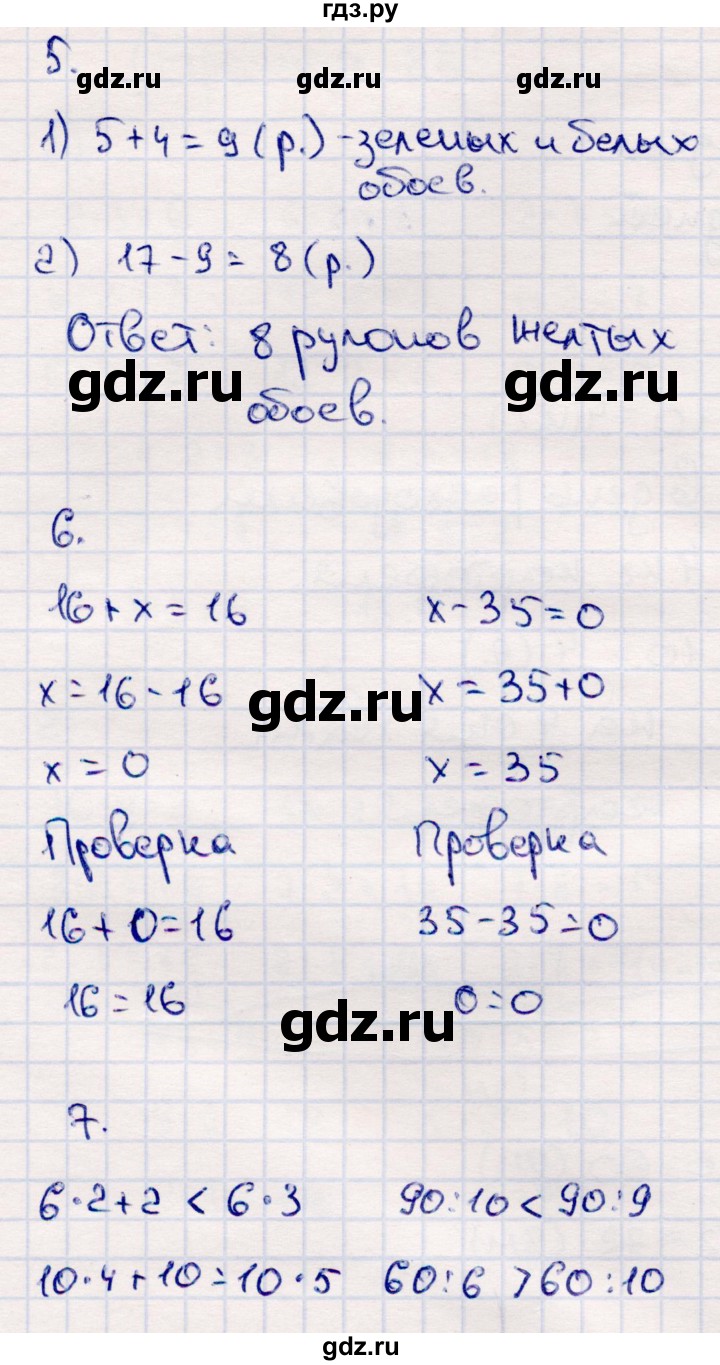 гдз.ру
5.
gdz.ru gdz.ru gdz.ru
1) 5+4=9(р.)-зеленых и белых
обоев.
2) 17-9=8(р.)
Ответ: 8 рулонов желтых
gdz.ru gdz.ru
обоев.
6.
16+x=16 x-35=0
x=16-16 x=35+0
gdz.ru
x=0 x=35
Проверка Проверка
16+0=16 35-35=0
16=16 0=0
gdz.ru
7.
6·2+2<6·3 90:10<90:9
10·4+10=10·5 60:6>60:10
gdz.ru